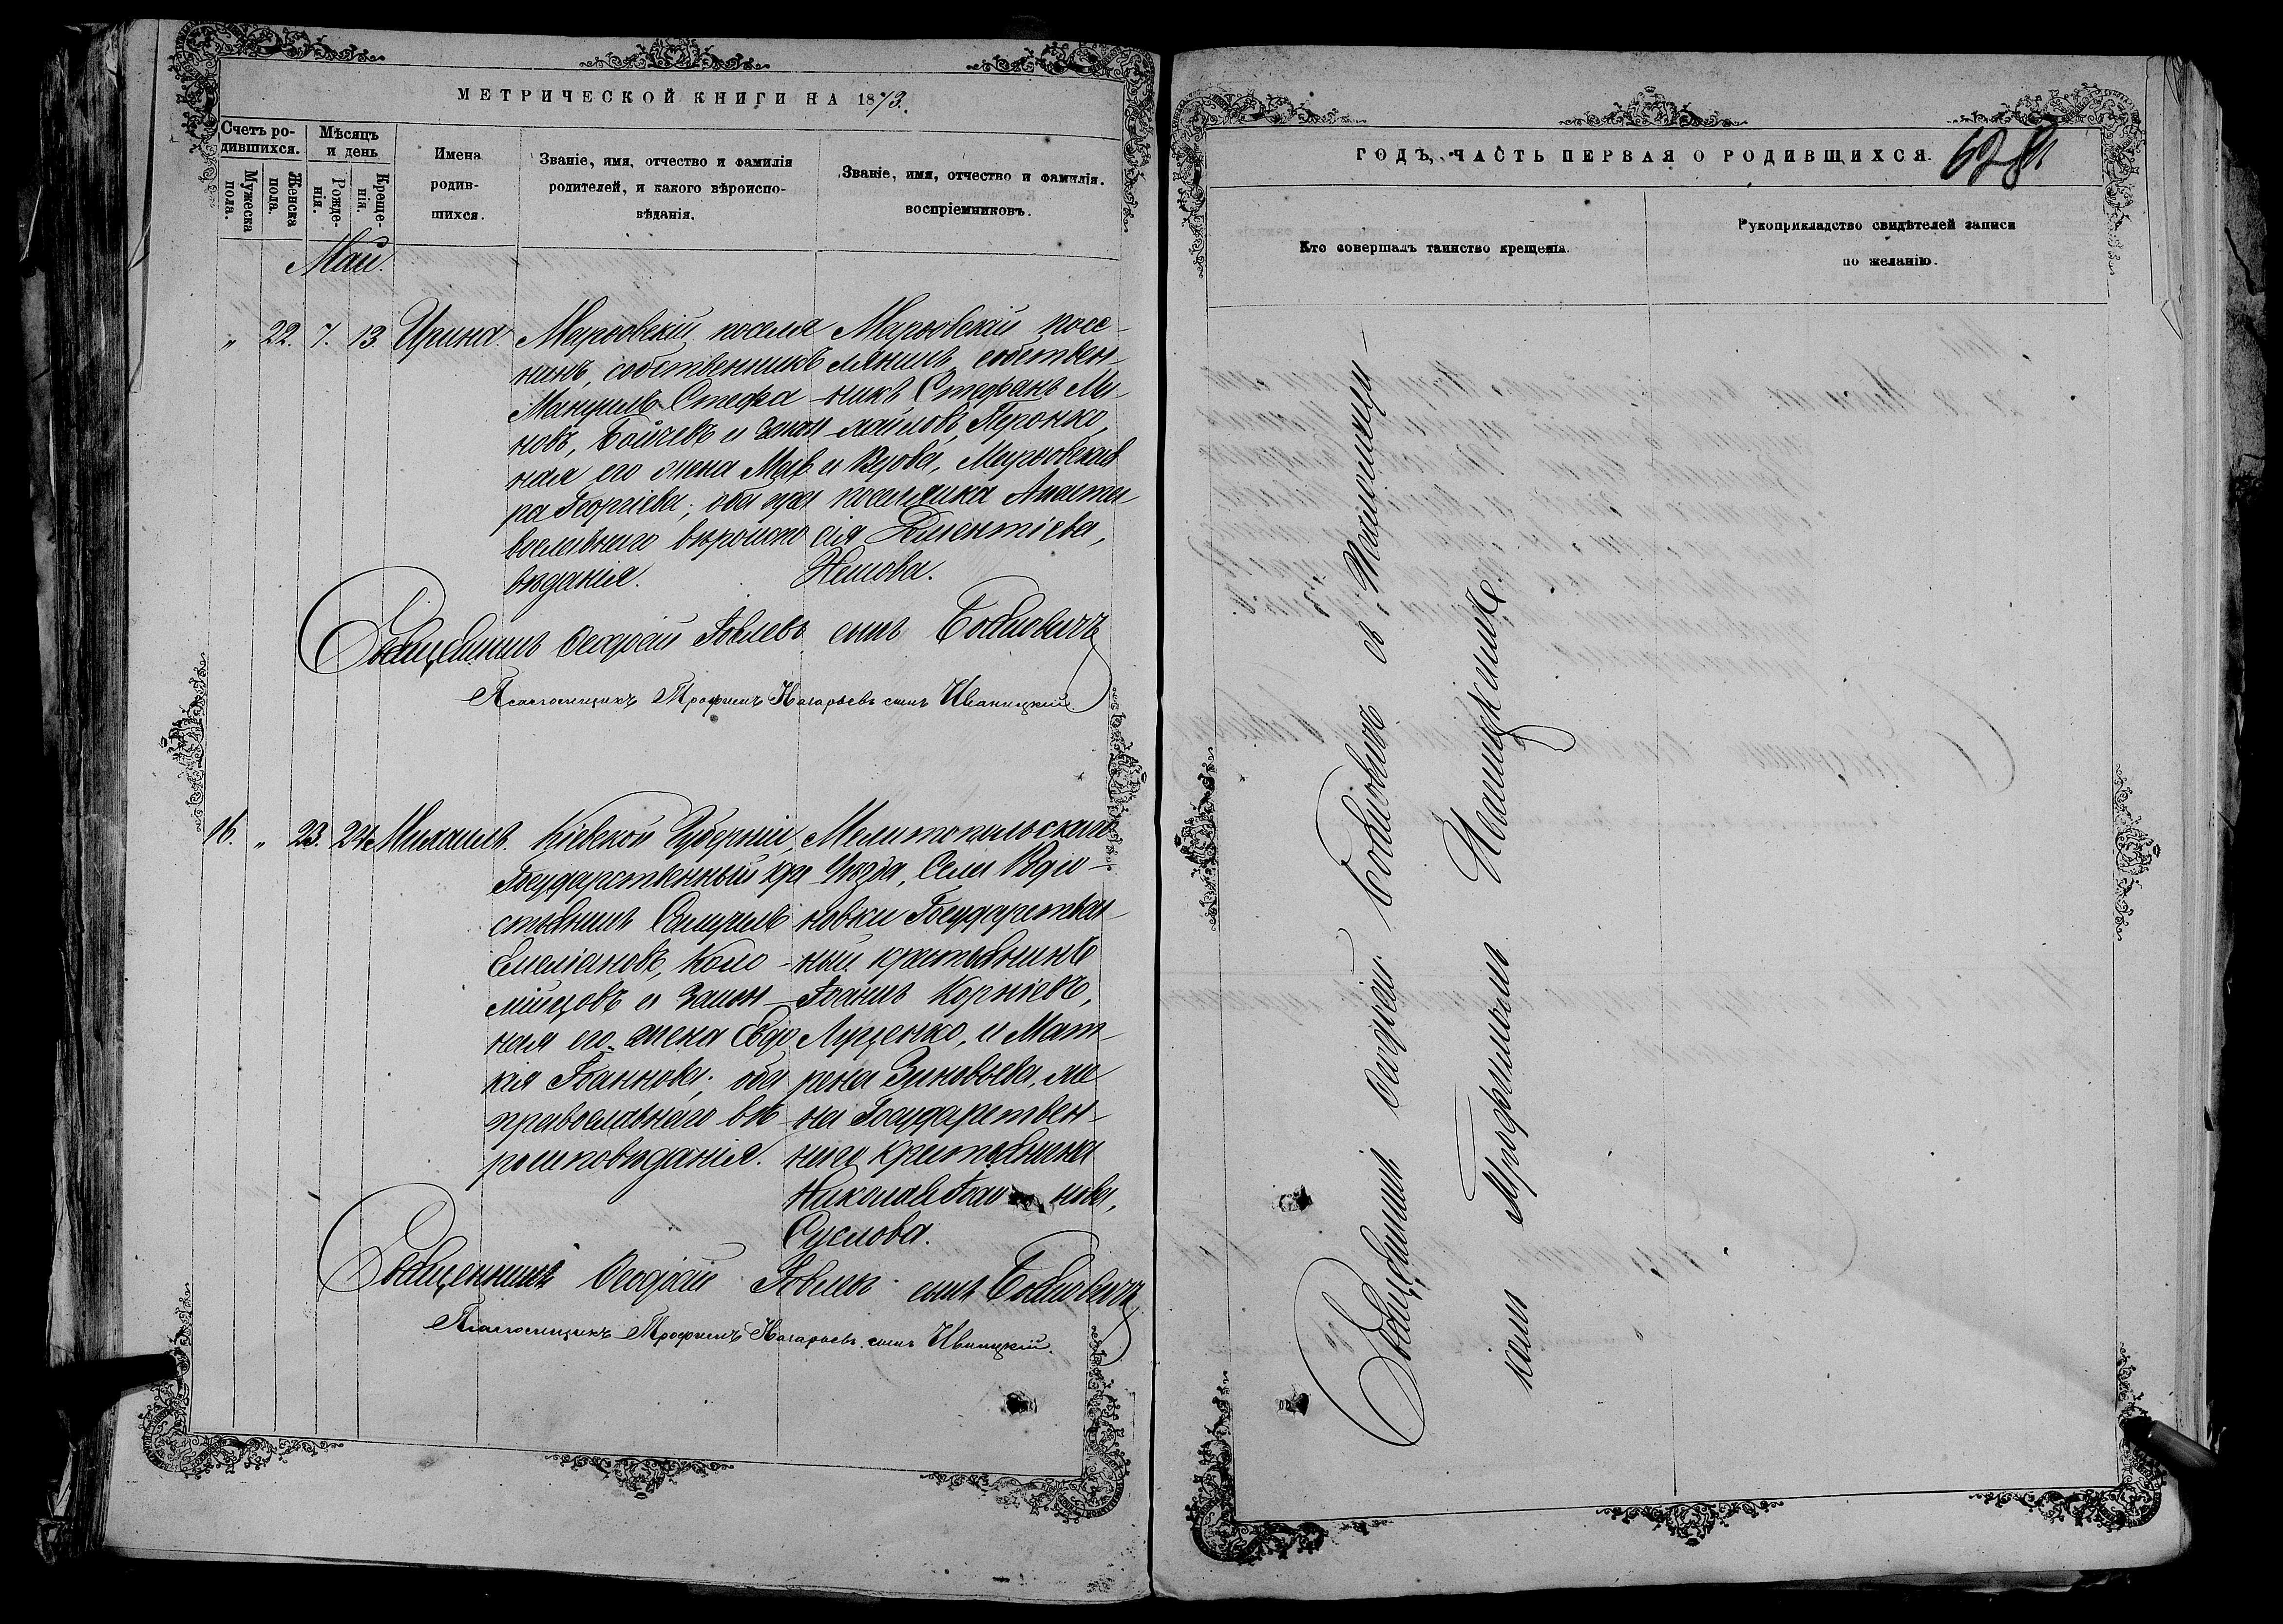 МЕТРИЧЕСКОЙ КНИГИ НА 1873.
Счетъ ро-
дившихся.
Мужеска
пола.
Женска
пола.
Мѣсяцъ
и день
Рожде-
нія.
Креще-
нія.
Имена
родив-
шихся.
Званіе, имя, отчество и фамилія
родителей, и какого вѣроиспо-
вѣданія.
Званіе, имя, отчество и фамилія.
воспріемниковъ.
Май.
„ 22. 7. 13. Ирина.
поселя
нинъ, собственникъ
Мануилъ Стефа
новъ, Бойчевъ и закон
ная его жена Мав
ра Георгіева; оба пра
вославнаго вѣроиспо
вѣданія.
посе-
лянинъ собствен-
никъ Стефанъ Ми-
хайловъ,
поселянка Анаста
сія
Священникъ Ѳеодосій Іовлевъ сынъ
Псаломщикъ Трофимъ Назарьевъ сынъ Иваницкій.
16. „ 23. 24. Михаилъ.
Кіевской Губерніи
Государственный кре
стьянинъ Самуилъ
Емеліановъ, Коло-
мійцовъ и закон-
ная его жена Евдо
кія Іоаннова; оба
православнаго вѣ-
роисповѣданія.
Мелитопольскаго
Уѣзда, Села
новки Государствен-
ный крестьянинъ
Іоаннъ Корніевъ,
Луценко, и Мат-
рена Зиновьева, же
на Государствен-
наго крестьянина
Николая Іоан нова,
Суслова.
Священникъ Ѳеодосій Іовлевъ сынъ
Псаломщикъ Трофимъ Назарьевъ сынъ Иваницкій.
ГОДЪ, ЧАСТЬ ПЕРВАЯ О РОДИВШИХСЯ.
Кто совершалъ таинство крещенія.
Рукоприкладство свидѣтелей записи
по желанію.
Священникъ Ѳеодосій съ Псаломщи-
комъ Трофимомъ Иваницкимъ.